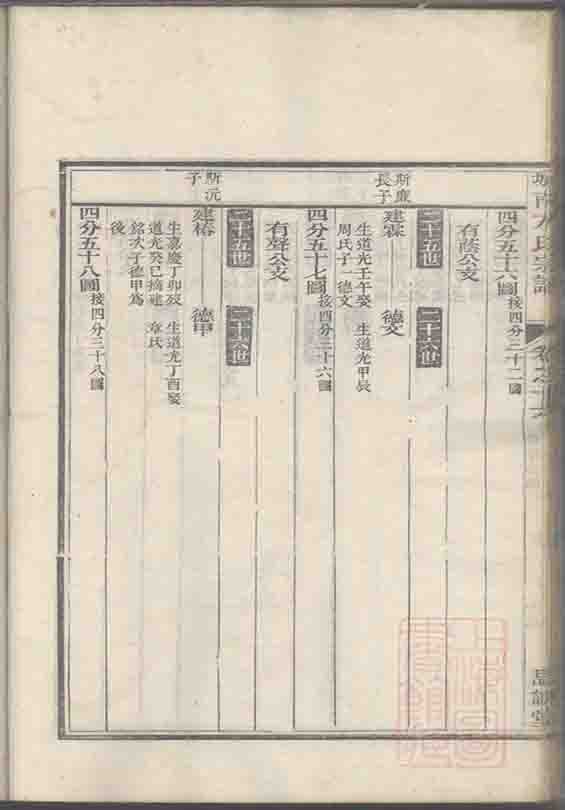 城南方氏宗譜
卷之十六
四分五十六圖接四分三十二圖
有蔭公支
二十五世 二十六世
斯慶長子
建霖 德文
生道光壬午娶 生道光甲辰
周氏子一德文
四分五十七圖接四分三十六圖
有聲公支
二十五世 二十六世
斯沅子
建椿 德甲
生嘉慶丁卯歿 生道光丁酉娶
道光癸巳摘建 章氏
銘次子德甲爲
後
四分五十八圖接四分三十八圖
上海圖書館藏